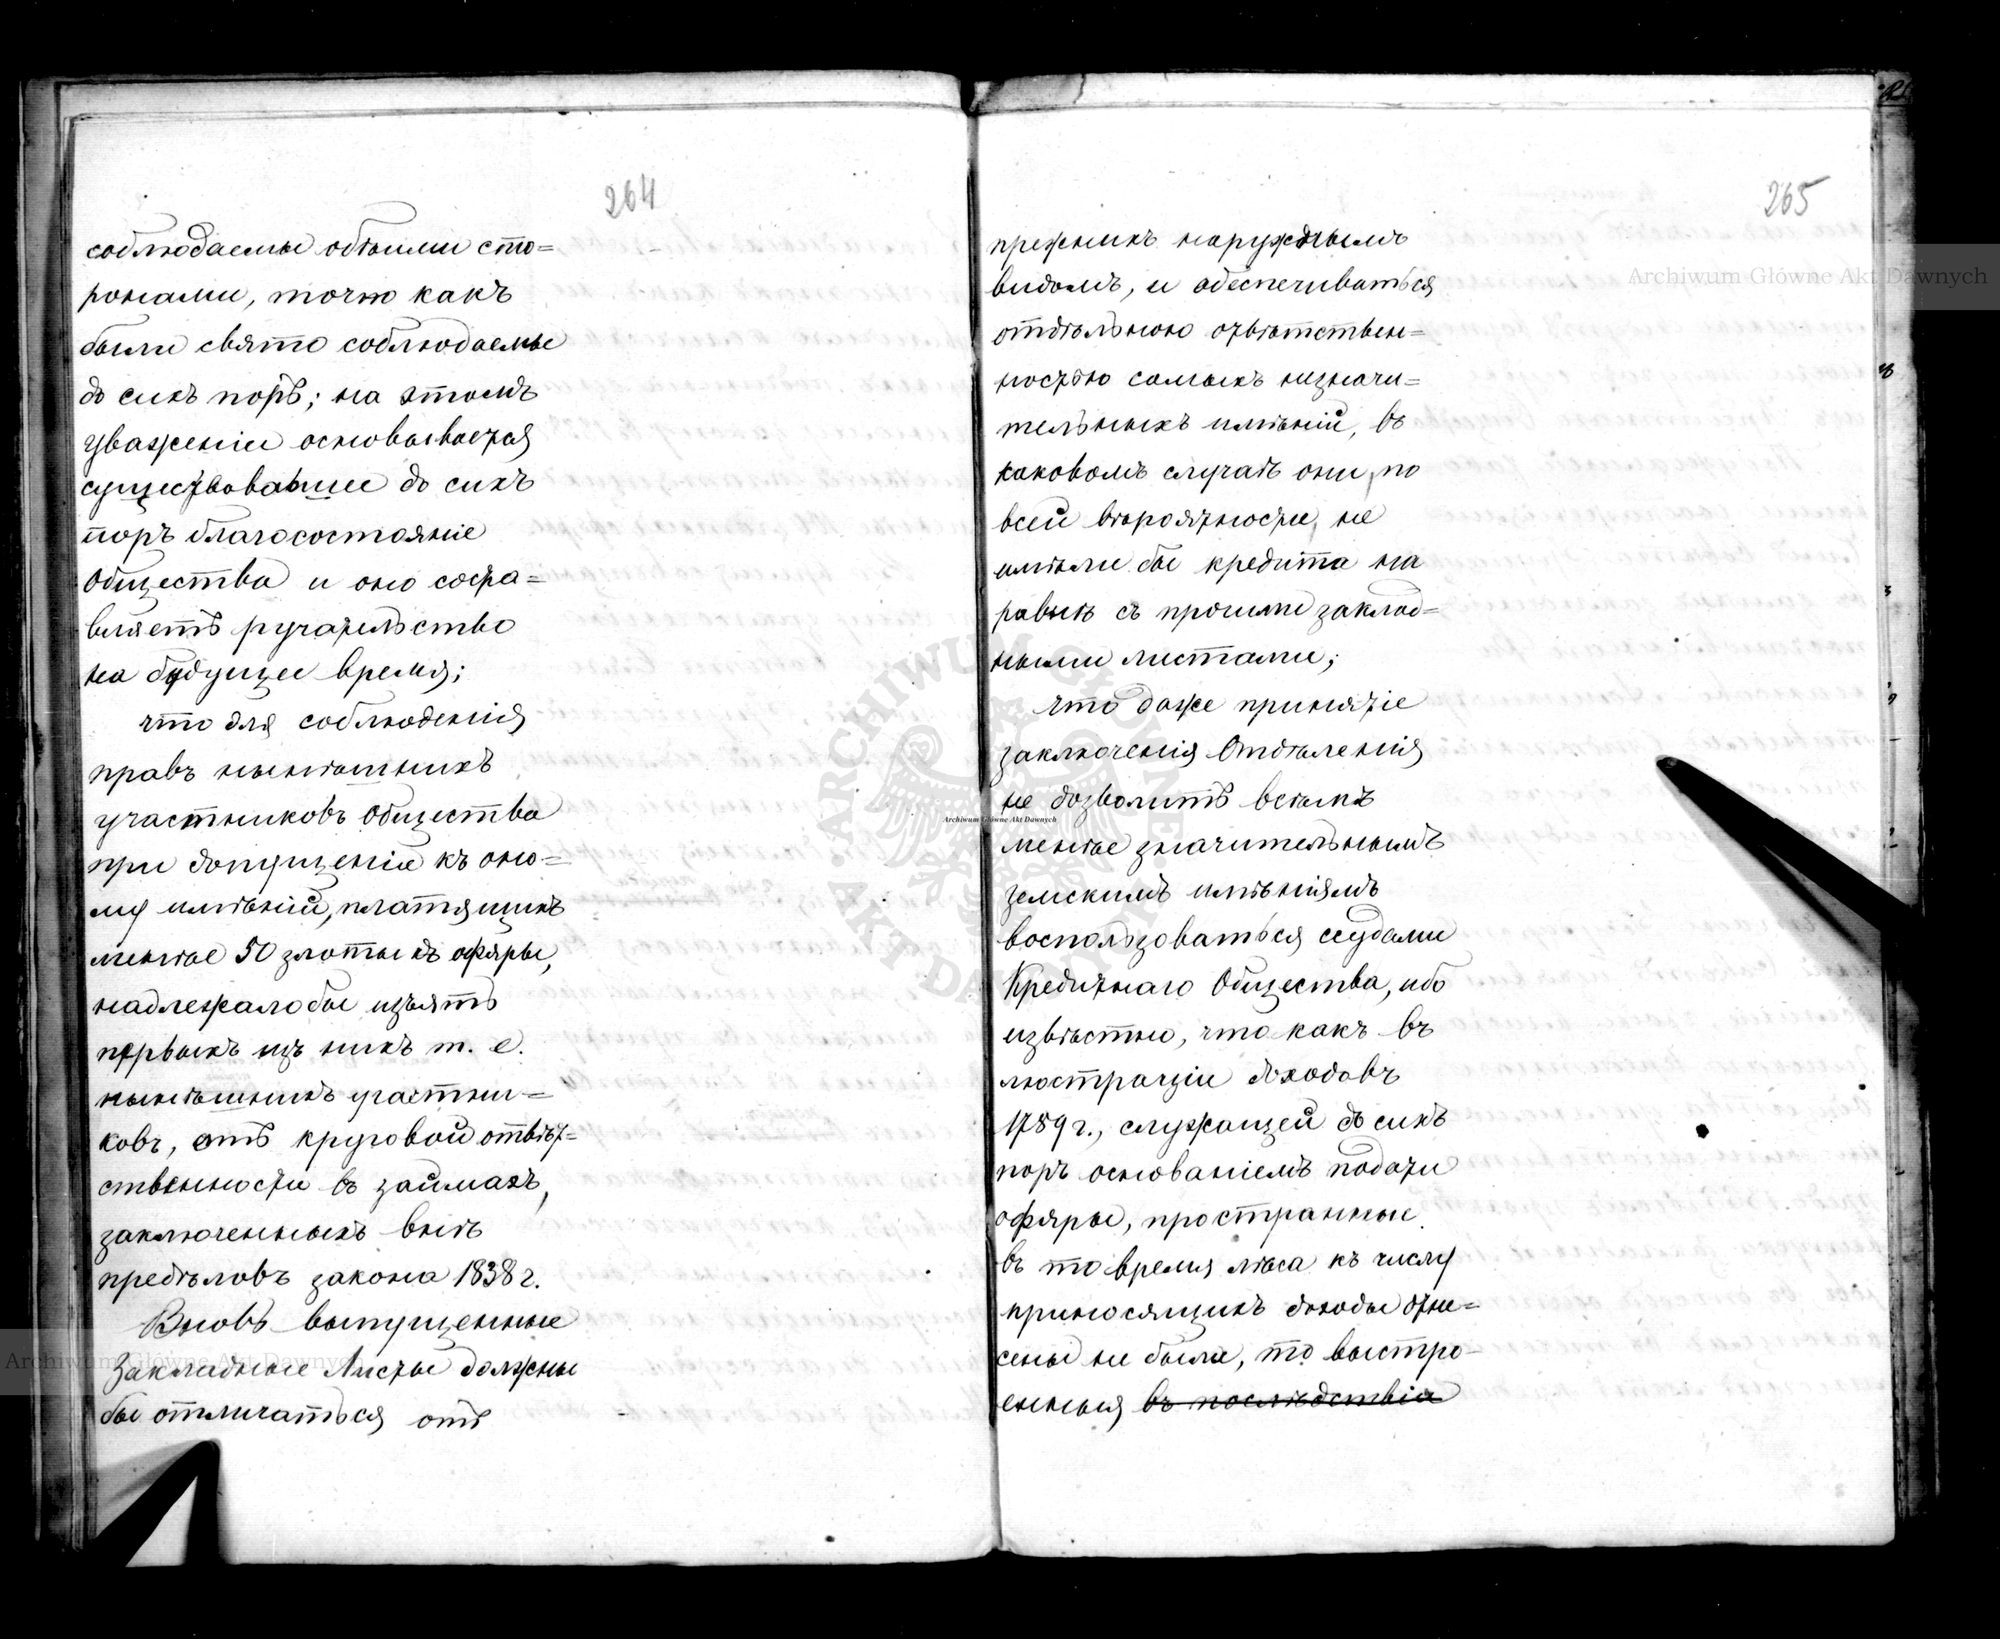 264
соблюдаемы обѣими сто=
ронами, точно какъ
были свято соблюдаемы
до сихъ поръ; на этомъ
уваженіи основывается
существовавшее до сихъ
поръ благосостояніе
Общества и оно соста=
вляетъ ручательство
на будущее время;
что для соблюденія
правъ нынѣшнихъ
участниковъ Общества
при допущеніи къ оно=
му имѣній, платящихъ
менѣе 50 злотыхъ офяры,
надлежало бы изъять
первыхъ изъ нихъ т. е.
нынѣшнихъ участни=
ковъ, отъ круговой отвѣт=
ственности въ займахъ,
заключенныхъ внѣ
предѣловъ закона 1838 г.
Вновь выпущенные
Закладные Листы должны
бы отличаться отъ
265
прежнихъ наружнымъ
видомъ, и обеспечиваться
отдѣльною отвѣтствен=
ностью самыхъ незначи=
тельныхъ имѣній, въ
каковомъ случаѣ они, по
всей вѣроятности, не
имѣли бы кредита на
равнѣ съ прочими заклад=
ными листами;
что даже принятіе
заключенія Отдѣленія
не дозволитъ всѣмъ
менѣе значительнымъ
земскимъ имѣніямъ
воспользоваться ссудами
Кредитнаго Общества, ибо
извѣстно, что какъ въ
люстраціи доходовъ
1789 г., служащей до сихъ
поръ основаніемъ подати
офяры, пространные
въ то время лѣса къ числу
приносящихъ доходы отне=
сены не были, то выстро=
енныя въ послѣдствіи
Archiwum Główne Akt Dawnych
Archiwum Główne Akt Dawnych
Archiwum Główne Akt Dawnych
ARCHIWUM GŁÓWNE AKT DAWNYCH